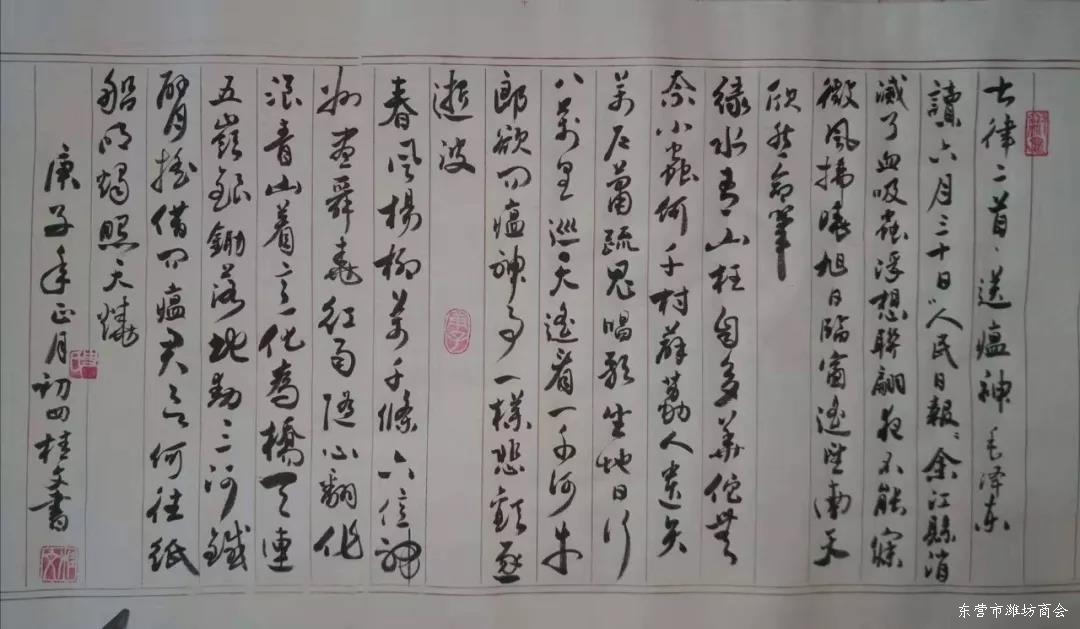 七律二首、送瘟神 毛泽东
讀六月三十日“人民日報”余江縣消
滅了血吸蟲浮想聯翩夜不能寐
微風拂曉旭日臨窗遙望南天
欣然命筆
綠水青山枉自多華佗無
奈小蟲何千村薜荔人遺矢
萬户蕭疏鬼唱歌坐地日行
八萬里巡天遙看一千河牛
郎欲问瘟神事一樣悲歡逐
逝波
春風楊柳萬千條六億神
州盡舜堯红雨隨心翻作
浪青山着意化為橋天連
五嶺銀鋤落地動三河鐵
臂搖借问瘟君欲何往紙
船明燭照天燒
庚子年正月初四桂文書
东营市潍坊商会